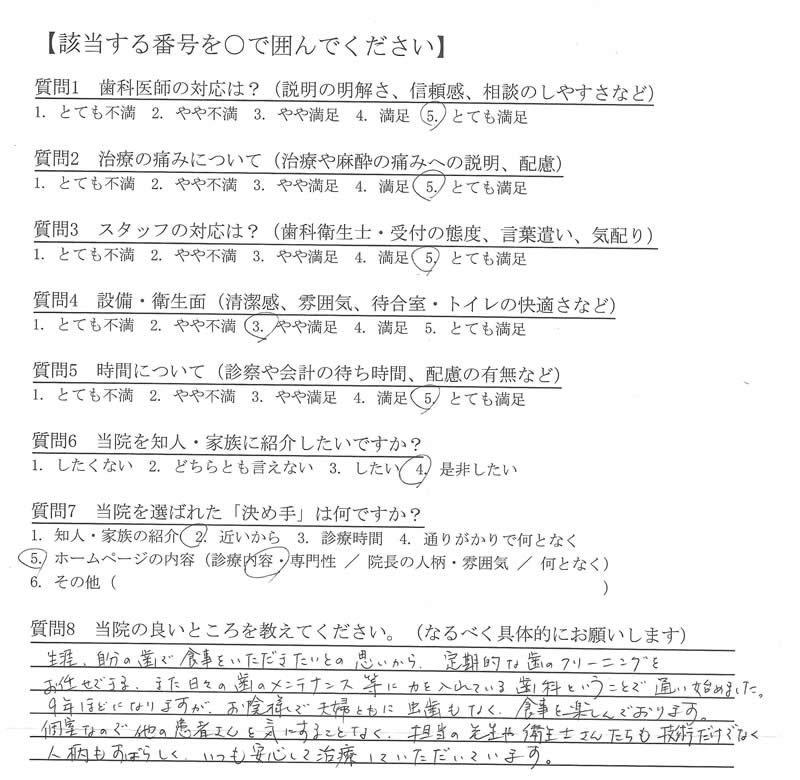 【該当する番号を○で囲んでください】
質問1　歯科医師の対応は？（説明の明解さ、信頼感、相談のしやすさなど）
1. とても不満　2. やや不満　3. やや満足　4. 満足　5. とても満足
質問2　治療の痛みについて（治療や麻酔の痛みへの説明、配慮）
1. とても不満　2. やや不満　3. やや満足　4. 満足　5. とても満足
質問3　スタッフの対応は？（歯科衛生士・受付の態度、言葉遣い、気配り）
1. とても不満　2. やや不満　3. やや満足　4. 満足　5. とても満足
質問4　設備・衛生面（清潔感、雰囲気、待合室・トイレの快適さなど）
1. とても不満　2. やや不満　3. やや満足　4. 満足　5. とても満足
質問5　時間について（診察や会計の待ち時間、配慮の有無など）
1. とても不満　2. やや不満　3. やや満足　4. 満足　5. とても満足
質問6　当院を知人・家族に紹介したいですか？
1. したくない　2. どちらとも言えない　3. したい　4. 是非したい
質問7　当院を選ばれた「決め手」は何ですか？
1. 知人・家族の紹介　2. 近いから　3. 診療時間　4. 通りがかりで何となく
5. ホームページの内容（診療内容・専門性 ／ 院長の人柄・雰囲気 ／ 何となく）
6. その他（　　　　　　　　　　）
質問8　当院の良いところを教えてください。（なるべく具体的にお願いします）
生涯、自分の歯で食事をいただきたいとの思いから、定期的な歯のクリーニングを
お任せできる、また日々の歯のメンテナンス等に力を入れている歯科ということで通い始めました。
9年ほどになりますが、お陰様で夫婦ともに虫歯もなく、食事を楽しんでおります。
個室なので他の患者さんを気にすることなく、担当の先生や衛生士さんたちも技術だけでなく
人柄もすばらしく、いつも安心して治療していただいています。